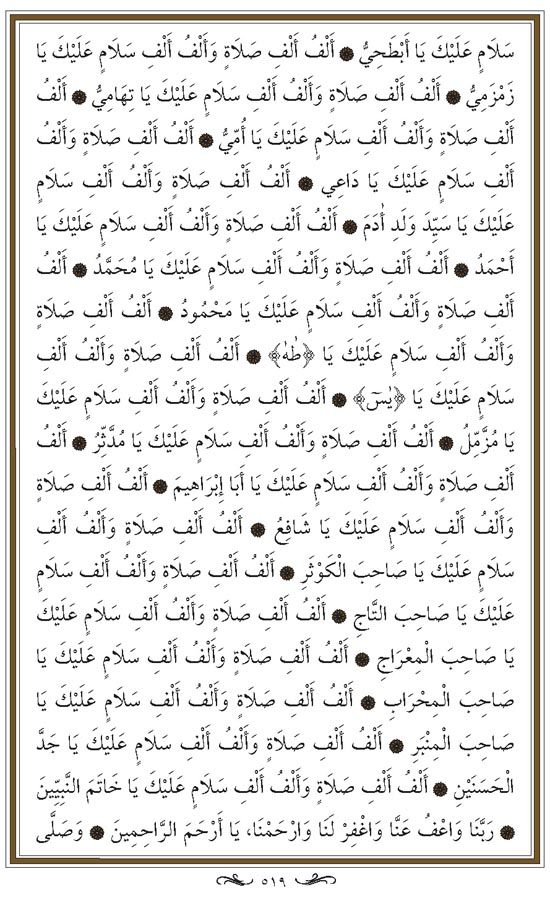 سَلَامٍ عَلَيْكَ يَا أَبْطَحِيُّ ۞ أَلْفُ أَلْفِ صَلَاةٍ وَأَلْفُ أَلْفِ سَلَامٍ عَلَيْكَ يَا
زَمْزَمِيُّ ۞ أَلْفُ أَلْفِ صَلَاةٍ وَأَلْفُ أَلْفِ سَلَامٍ عَلَيْكَ يَا تِهَامِيُّ ۞ أَلْفُ
أَلْفِ صَلَاةٍ وَأَلْفُ أَلْفِ سَلَامٍ عَلَيْكَ يَا أُمِّيُّ ۞ أَلْفُ أَلْفِ صَلَاةٍ وَأَلْفُ
أَلْفِ سَلَامٍ عَلَيْكَ يَا دَاعِي ۞ أَلْفُ أَلْفِ صَلَاةٍ وَأَلْفُ أَلْفِ سَلَامٍ
عَلَيْكَ يَا سَيِّدَ وَلَدِ أٰدَمَ ۞ أَلْفُ أَلْفِ صَلَاةٍ وَأَلْفُ أَلْفِ سَلَامٍ عَلَيْكَ يَا
أَحْمَدُ ۞ أَلْفُ أَلْفِ صَلَاةٍ وَأَلْفُ أَلْفِ سَلَامٍ عَلَيْكَ يَا مُحَمَّدُ ۞ أَلْفُ
أَلْفِ صَلَاةٍ وَأَلْفُ أَلْفِ سَلَامٍ عَلَيْكَ يَا مَحْمُودُ ۞ أَلْفُ أَلْفِ صَلَاةٍ
وَأَلْفُ أَلْفِ سَلَامٍ عَلَيْكَ يَا ﴿طٰهٰ﴾ ۞ أَلْفُ أَلْفِ صَلَاةٍ وَأَلْفُ أَلْفِ
سَلَامٍ عَلَيْكَ يَا ﴿يٰسٓ﴾ ۞ أَلْفُ أَلْفِ صَلَاةٍ وَأَلْفُ أَلْفِ سَلَامٍ عَلَيْكَ
يَا مُزَّمِّلُ ۞ أَلْفُ أَلْفِ صَلَاةٍ وَأَلْفُ أَلْفِ سَلَامٍ عَلَيْكَ يَا مُدَّثِّرُ ۞ أَلْفُ
أَلْفِ صَلَاةٍ وَأَلْفُ أَلْفِ سَلَامٍ عَلَيْكَ يَا أَبَا إِبْرَاهِيمَ ۞ أَلْفُ أَلْفِ صَلَاةٍ
وَأَلْفُ أَلْفِ سَلَامٍ عَلَيْكَ يَا شَافِعُ ۞ أَلْفُ أَلْفِ صَلَاةٍ وَأَلْفُ أَلْفِ
سَلَامٍ عَلَيْكَ يَا صَاحِبَ الْكَوْثَرِ ۞ أَلْفُ أَلْفِ صَلَاةٍ وَأَلْفُ أَلْفِ سَلَامٍ
عَلَيْكَ يَا صَاحِبَ التَّاجِ ۞ أَلْفُ أَلْفِ صَلَاةٍ وَأَلْفُ أَلْفِ سَلَامٍ عَلَيْكَ
يَا صَاحِبَ الْمِعْرَاجِ ۞ أَلْفُ أَلْفِ صَلَاةٍ وَأَلْفُ أَلْفِ سَلَامٍ عَلَيْكَ يَا
صَاحِبَ الْمِحْرَابِ ۞ أَلْفُ أَلْفِ صَلَاةٍ وَأَلْفُ أَلْفِ سَلَامٍ عَلَيْكَ يَا
صَاحِبَ الْمِنْبَرِ ۞ أَلْفُ أَلْفِ صَلَاةٍ وَأَلْفُ أَلْفِ سَلَامٍ عَلَيْكَ يَا جَدَّ
الْحَسَنَيْنِ ۞ أَلْفُ أَلْفِ صَلَاةٍ وَأَلْفُ أَلْفِ سَلَامٍ عَلَيْكَ يَا خَاتَمَ النَّبِيِّينَ
۞ رَبَّنَا وَاعْفُ عَنَّا وَاغْفِرْ لَنَا وَارْحَمْنَا، يَا أَرْحَمَ الرَّاحِمِينَ ۞ وَصَلَّى
٥١٩